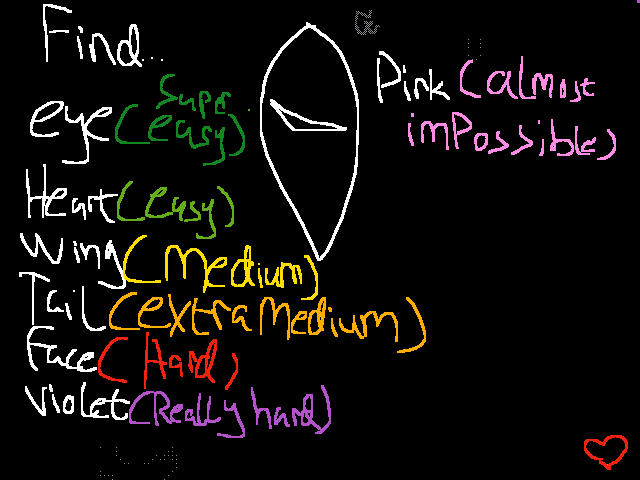 Find...
eye (super easy)
Heart (easy)
Wing (Medium)
Tail (extra Medium)
Face (Hard)
Violet (Really hard)
Pink (almost
imPossible)